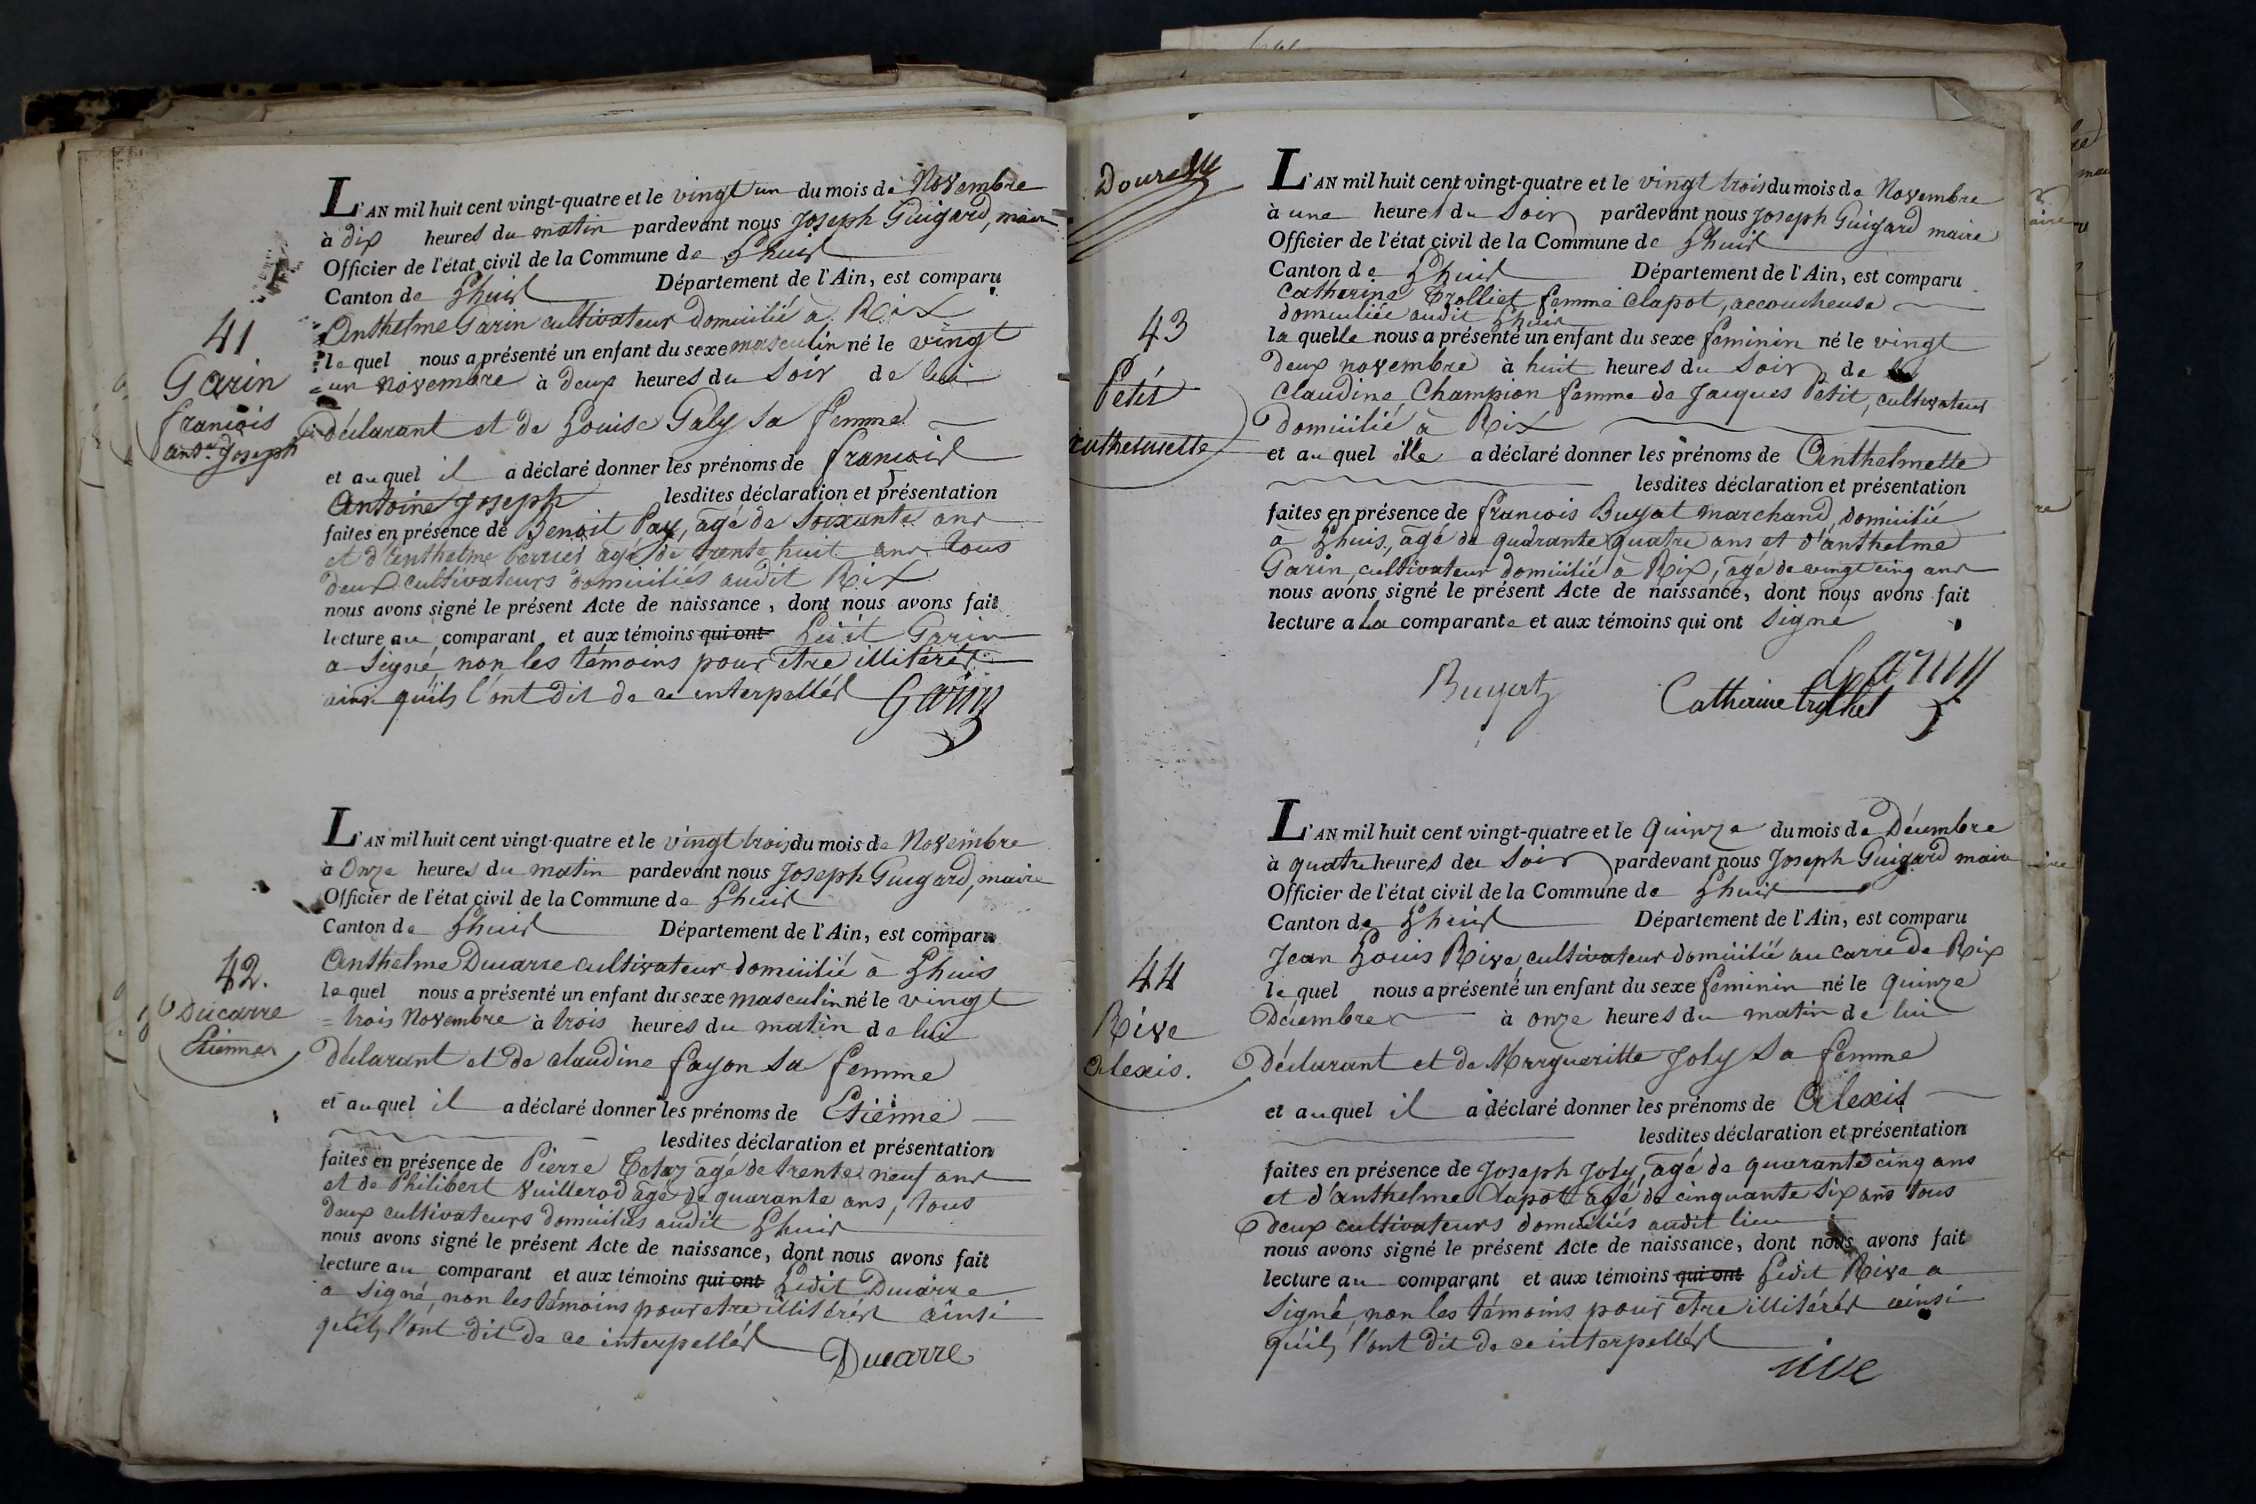 41
Garin
françois
ant.ne Joseph
L'AN mil huit cent vingt-quatre et le vingt un du mois de Novembre
à dix heures du matin pardevant nous Joseph Guigard, maire
Officier de l'état civil de la Commune de Lhuis
Canton de Lhuis Département de l'Ain, est comparu
Anthelme Garin cultivateur domicilié à Rix
lequel nous a présenté un enfant du sexe masculin né le vingt
= un novembre à deux heures du soir de lui
déclarant et de Louise Galy sa femme
et auquel il a déclaré donner les prénoms de françois
Antoine Joseph lesdites déclaration et présentation
faites en présence de Benoit Pay, agé de soixante ans
et d'anthelme berrier agé de trente huit ans tous
deux cultivateurs domiciliés audit Rix
nous avons signé le présent Acte de naissance, dont nous avons fait
lecture au comparant et aux témoins qui ont Ledit Garin
a signé, non les témoins pour être illitérés
ainsi qu'ils l'ont dit de ce interpellés Garin
42.
Ducarre
Etienne
L'AN mil huit cent vingt-quatre et le vingt trois du mois de Novembre
à Onze heures du matin pardevant nous Joseph Guigard, maire
Officier de l'état civil de la Commune de Lhuis
Canton de Lhuis Département de l'Ain, est comparu
Anthelme Ducarre cultivateur domicilié à Lhuis
lequel nous a présenté un enfant du sexe masculin né le vingt
= trois Novembre à trois heures du matin de lui
déclarant et de claudine fayon sa femme
et auquel il a déclaré donner les prénoms de Etienne
lesdites déclaration et présentation
faites en présence de Pierre agé de trente neuf ans
et de Philibert Vuillerod agé de quarante ans, tous
deux cultivateurs domiciliés audit Lhuis
nous avons signé le présent Acte de naissance, dont nous avons fait
lecture au comparant et aux témoins qui ont Ledit Ducarre
a signé, non les témoins pour etre illitérés ainsi
qu'ils l'ont dit de ce interpellés
Ducarre
43
Petit
Anthelmette
L'AN mil huit cent vingt-quatre et le vingt trois du mois de Novembre
à une heures du soir pardevant nous Joseph Guigard maire
Officier de l'état civil de la Commune de Lhuis
Canton de Lhuis Département de l'Ain, est comparu
Catherine Trolliet femme clapot, accoucheuse
domiciliée audit Lhuis
la quelle nous a présenté un enfant du sexe feminin né le vingt
deux novembre à huit heures du soir de
Claudine Champion femme de Jacques Petit, cultivateur
domicilié à Rix
et auquel elle a déclaré donner les prénoms de Anthelmette
lesdites déclaration et présentation
faites en présence de françois Buyat marchand, domicilié
à Lhuis, agé de quarante quatre ans et d'anthelme
Garin, cultivateur domicilié à Rix, agé de vingt cinq ans
nous avons signé le présent Acte de naissance, dont nous avons fait
lecture a la comparante et aux témoins qui ont signé
Garin
Catherine
44
Rive
Alexis.
L'AN mil huit cent vingt-quatre et le quinze du mois de Décembre
à quatre heures du soir pardevant nous Joseph Guigard maire
Officier de l'état civil de la Commune de Lhuis
Canton de Lhuis Département de l'Ain, est comparu
Jean Louis Rive, cultivateur domicilié au carre de Rix
lequel nous a présenté un enfant du sexe feminin né le quinze
Décembre à onze heures du matin de lui
déclarant et de Margueritte Joly sa femme
et auquel il a déclaré donner les prénoms de Alexis
lesdites déclaration et présentation
faites en présence de Joseph Joly, agé de quarante cinq ans
et d'anthelme Clapot agé de cinquante six ans tous
deux cultivateurs domiciliés audit lieu
nous avons signé le présent Acte de naissance, dont nous avons fait
lecture au comparant et aux témoins qui ont Ledit Rive a
signé, non les témoins pour être illitérés ainsi
qu'ils l'ont dit de ce interpellés
rive